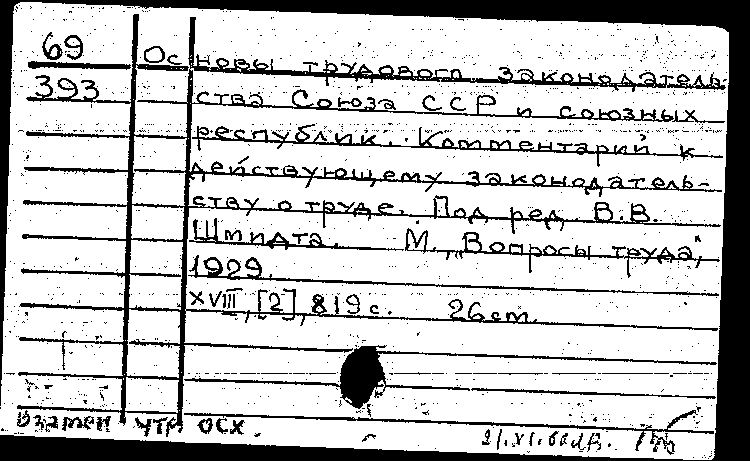 69
Основы трудового законодатель
393
ства Союза ССР и союзных
республик. Комментарий к
действующему законодатель-
ству о труде. Под ред. В.В.
Шмидта. М., "Вопросы труда",
1929.
XVIII, [2], 819 с. 26 ст.
Взамен утр осх.